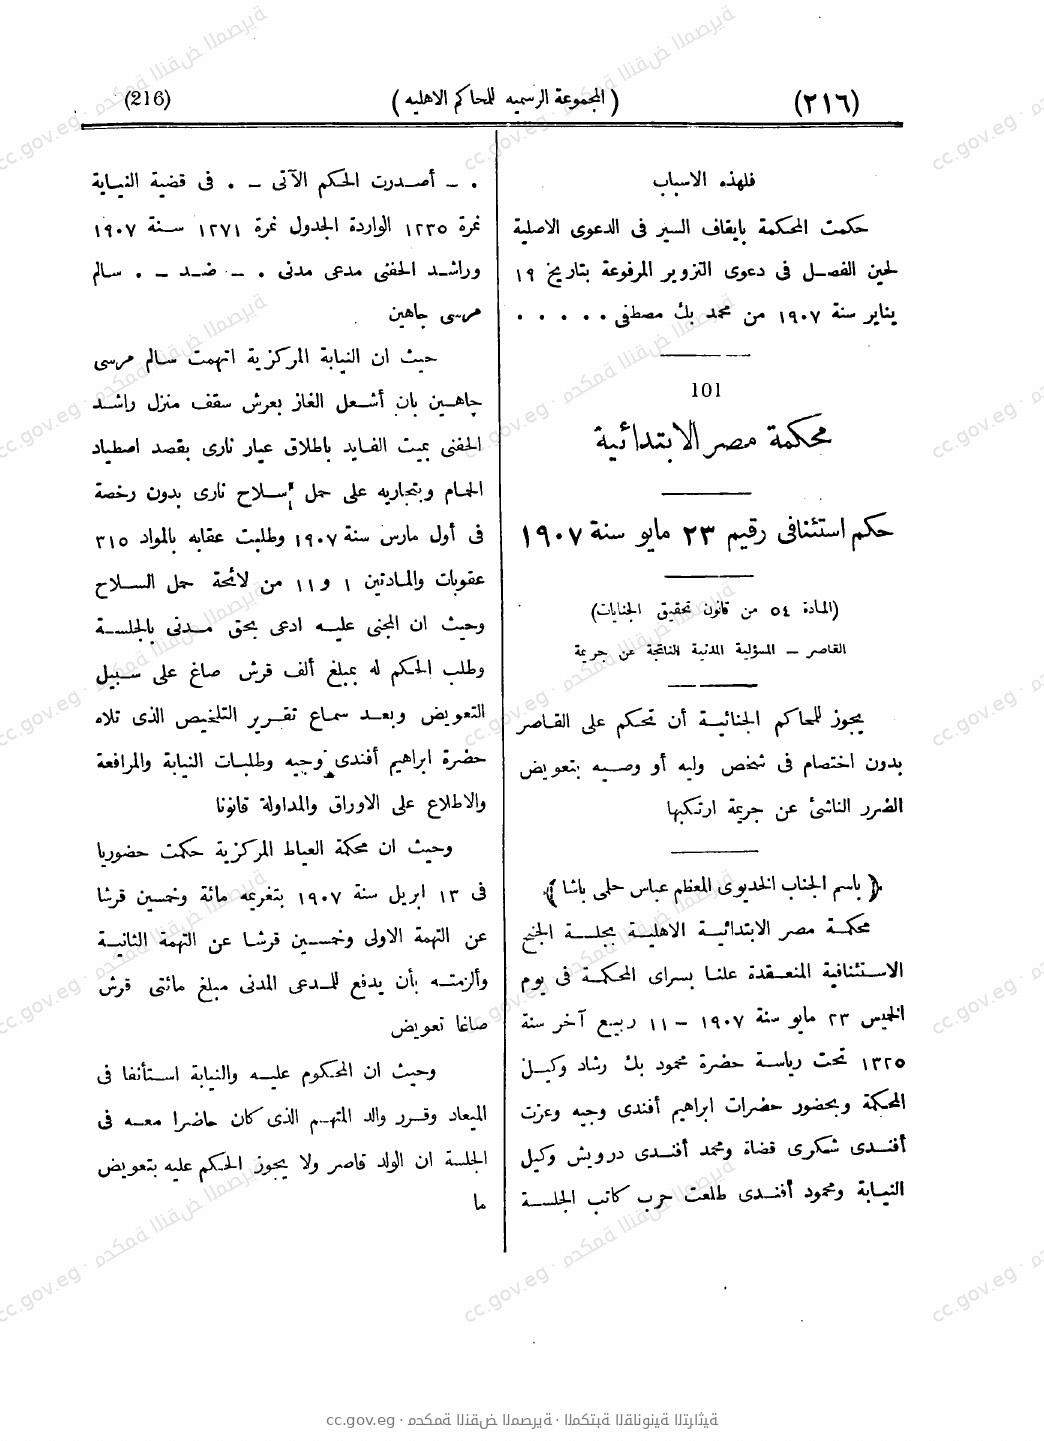 (٢١٦) ( المجموعة الرسميه للمحاكم الاهليه ) (216)
فلهذه الاسباب
حكمت المحكمة بايقاف السير فى الدعوى الاصلية
لحين الفصل فى دعوى التزوير المرفوعة بتاريخ ١٩
يناير سنة ١٩٠٧ من محمد بك مصطفى . . . . .
101
محكمة مصر الابتدائية
حكم استئنافى رقيم ٢٣ مايو سنة ١٩٠٧
(المادة ٥٤ من قانون تحقيق الجنايات)
القاصر – المسؤلية المدنية الناتجة عن جريمة
يجوز للمحاكم الجنائية أن تحكم على القاصر
بدون اختصام فى شخص وليه أو وصيه بتعويض
الضرر الناشئ عن جريمة ارتكبها
﴿ باسم الجناب الخديوى المعظم عباس حلمى باشا ﴾
محكمة مصر الابتدائية الاهلية بجلسة الجنح
الاستئنافية المنعقدة علنا بسراى المحكمة فى يوم
الخميس ٢٣ مايو سنة ١٩٠٧ – ١١ ربيع آخر سنة
١٣٢٥ تحت رياسة حضرة محمود بك رشاد وكيل
المحكمة وبحضور حضرات ابراهيم أفندى وجيه وعزت
أفندى شكرى قضاة ومحمد أفندى درويش وكيل
النيابة ومحمود أفندى طلعت حرب كاتب الجلسة
. – أصدرت الحكم الآتى – . فى قضية النيابة
نمرة ١٢٣٥ الواردة الجدول نمرة ١٢٧١ سنة ١٩٠٧
وراشد الحفنى مدعى مدنى . – ضد – . سالم
مرسى جاهين
حيث ان النيابة المركزية اتهمت سالم مرسى
جاهين بان أشعل الغاز بعرش سقف منزل راشد
الحفنى بميت الفايد باطلاق عيار نارى بقصد اصطياد
الحمام وبتجاريه على حمل سلاح نارى بدون رخصة
فى أول مارس سنة ١٩٠٧ وطلبت عقابه بالمواد ٣١٥
عقوبات والمادتين ١ و١١ من لائحة حمل السلاح
وحيث ان المجنى عليه ادعى بحق مدنى بالجلسة
وطلب الحكم له بمبلغ ألف قرش صاغ على سبيل
التعويض وبعد سماع تقرير التلخيص الذى تلاه
حضرة ابراهيم أفندى وجيه وطلبات النيابة والمرافعة
والاطلاع على الاوراق والمداولة قانونا
وحيث ان محكمة العياط المركزية حكمت حضوريا
فى ١٣ ابريل سنة ١٩٠٧ بتغريمه مائة وخمسين قرشا
عن التهمة الاولى وخمسين قرشا عن التهمة الثانية
وألزمته بأن يدفع للمدعى المدنى مبلغ مائتى قرش
صاغا تعويض
وحيث ان المحكوم عليه والنيابة استأنفا فى
الميعاد وقرر والد المتهم الذى كان حاضرا معه فى
الجلسة ان الولد قاصر ولا يجوز الحكم عليه بتعويض
ما
cc.gov.eg · محكمة النقض المصرية · المكتبة القانونية التراثية